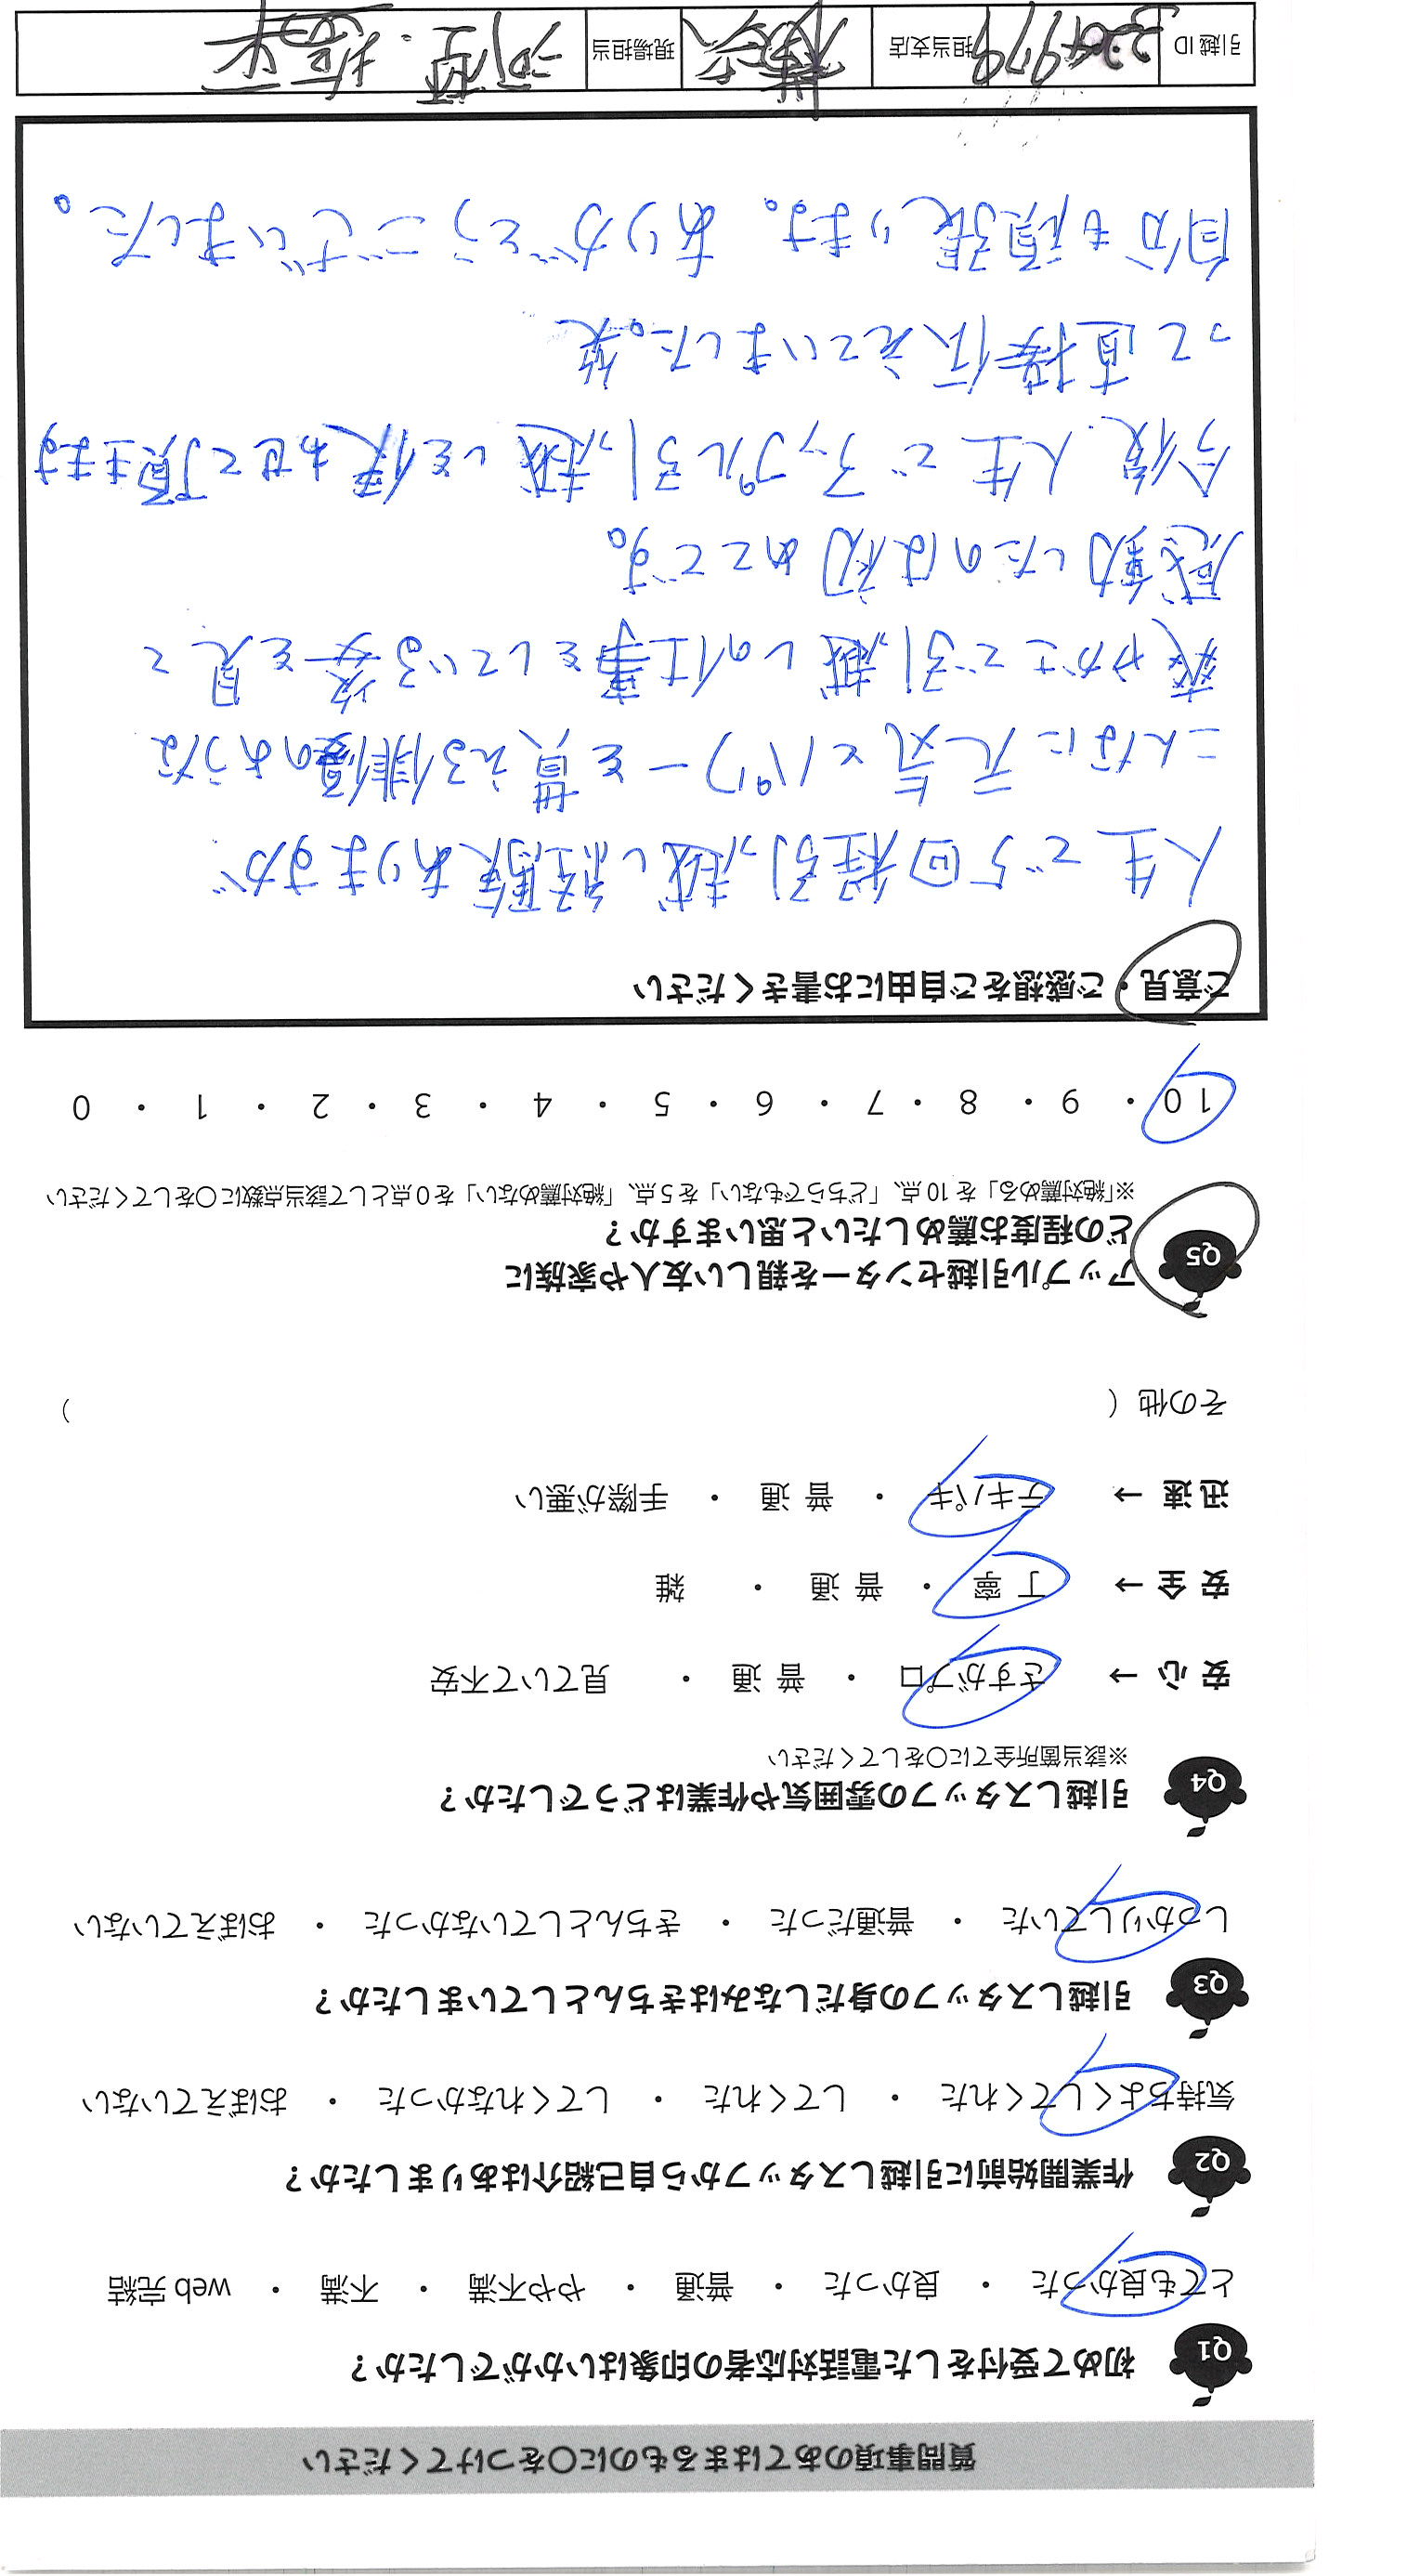 質問事項のあてはまるものに〇をつけてください
Q1 初めて受付をした電話対応者の印象はいかがでしたか？
とても良かった ・ 良かった ・ 普通 ・ やや不満 ・ 不満 ・ web 完結
Q2 作業開始前に引越しスタッフから自己紹介はありましたか？
気持ちよくしてくれた ・ してくれた ・ してくれなかった ・ おぼえていない
Q3 引越しスタッフの身だしなみはきちんとしていましたか？
しっかりしていた ・ 普通だった ・ きちんとしていなかった ・ おぼえていない
Q4 引越しスタッフの雰囲気や作業はどうでしたか？
※該当箇所全てに〇をしてください
安 心 → さすがプロ ・ 普 通 ・ 見ていて不安
安 全 → 丁 寧 ・ 普 通 ・ 雑
迅 速 → テキパキ ・ 普 通 ・ 手際が悪い
その他 ( )
Q5 アップル引越センターを親しい友人や家族に
どの程度お薦めしたいと思いますか？
※「絶対薦める」を 10 点、「どちらでもない」を 5 点、「絶対薦めない」を 0 点として該当点数に〇をしてください
10 ・ 9 ・ 8 ・ 7 ・ 6 ・ 5 ・ 4 ・ 3 ・ 2 ・ 1 ・ 0
ご意見・ご感想をご自由にお書きください
人生で5回程引越し経験ありますが
こんなに元気とパワーを貰える俳優のような
爽やかさで引越しの仕事をしている姿を見て
感動したのは初めてです。
今後、人生でアップル引越しを使わせて頂きます
って直接伝えていました。笑
自分も頑張ります。ありがとうございました。
引越 ID 担当支店 現場担当